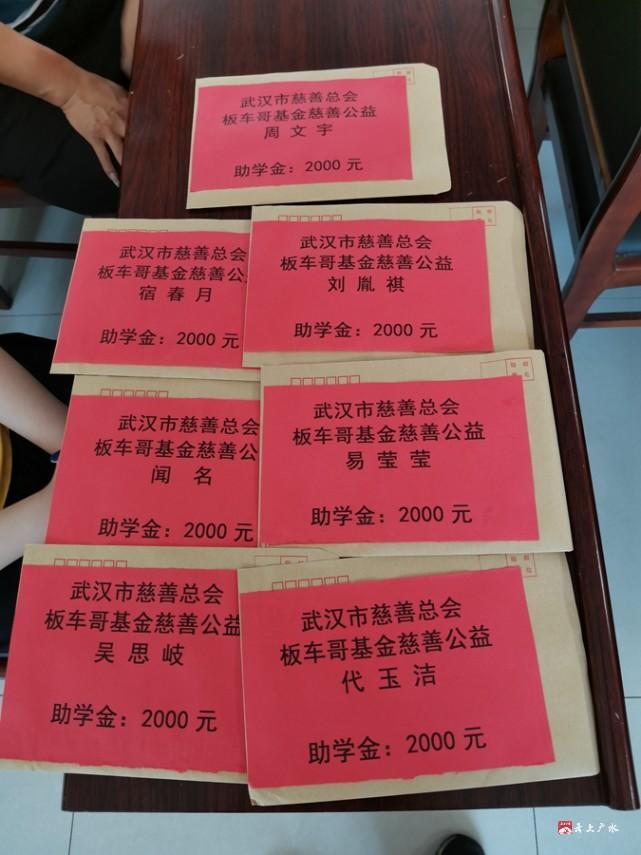 武汉市慈善总会
板车哥基金慈善公益
周文宇
助学金：2000元
武汉市慈善总会
板车哥基金慈善公
宿春月
助学金：2000元
武汉市慈善总会
板车哥基金慈善公益
刘胤祺
助学金：2000元
武汉市慈善总会
板车哥基金慈善公
闻名
助学金：2000元
武汉市慈善总会
板车哥基金慈善公益
易莹莹
助学金：2000元
武汉市慈善总会
板车哥基金慈善公益
吴思岐
助学金：2000元
武汉市慈善总会
板车哥基金慈善公益
代玉洁
助学金：2000元
云上广水